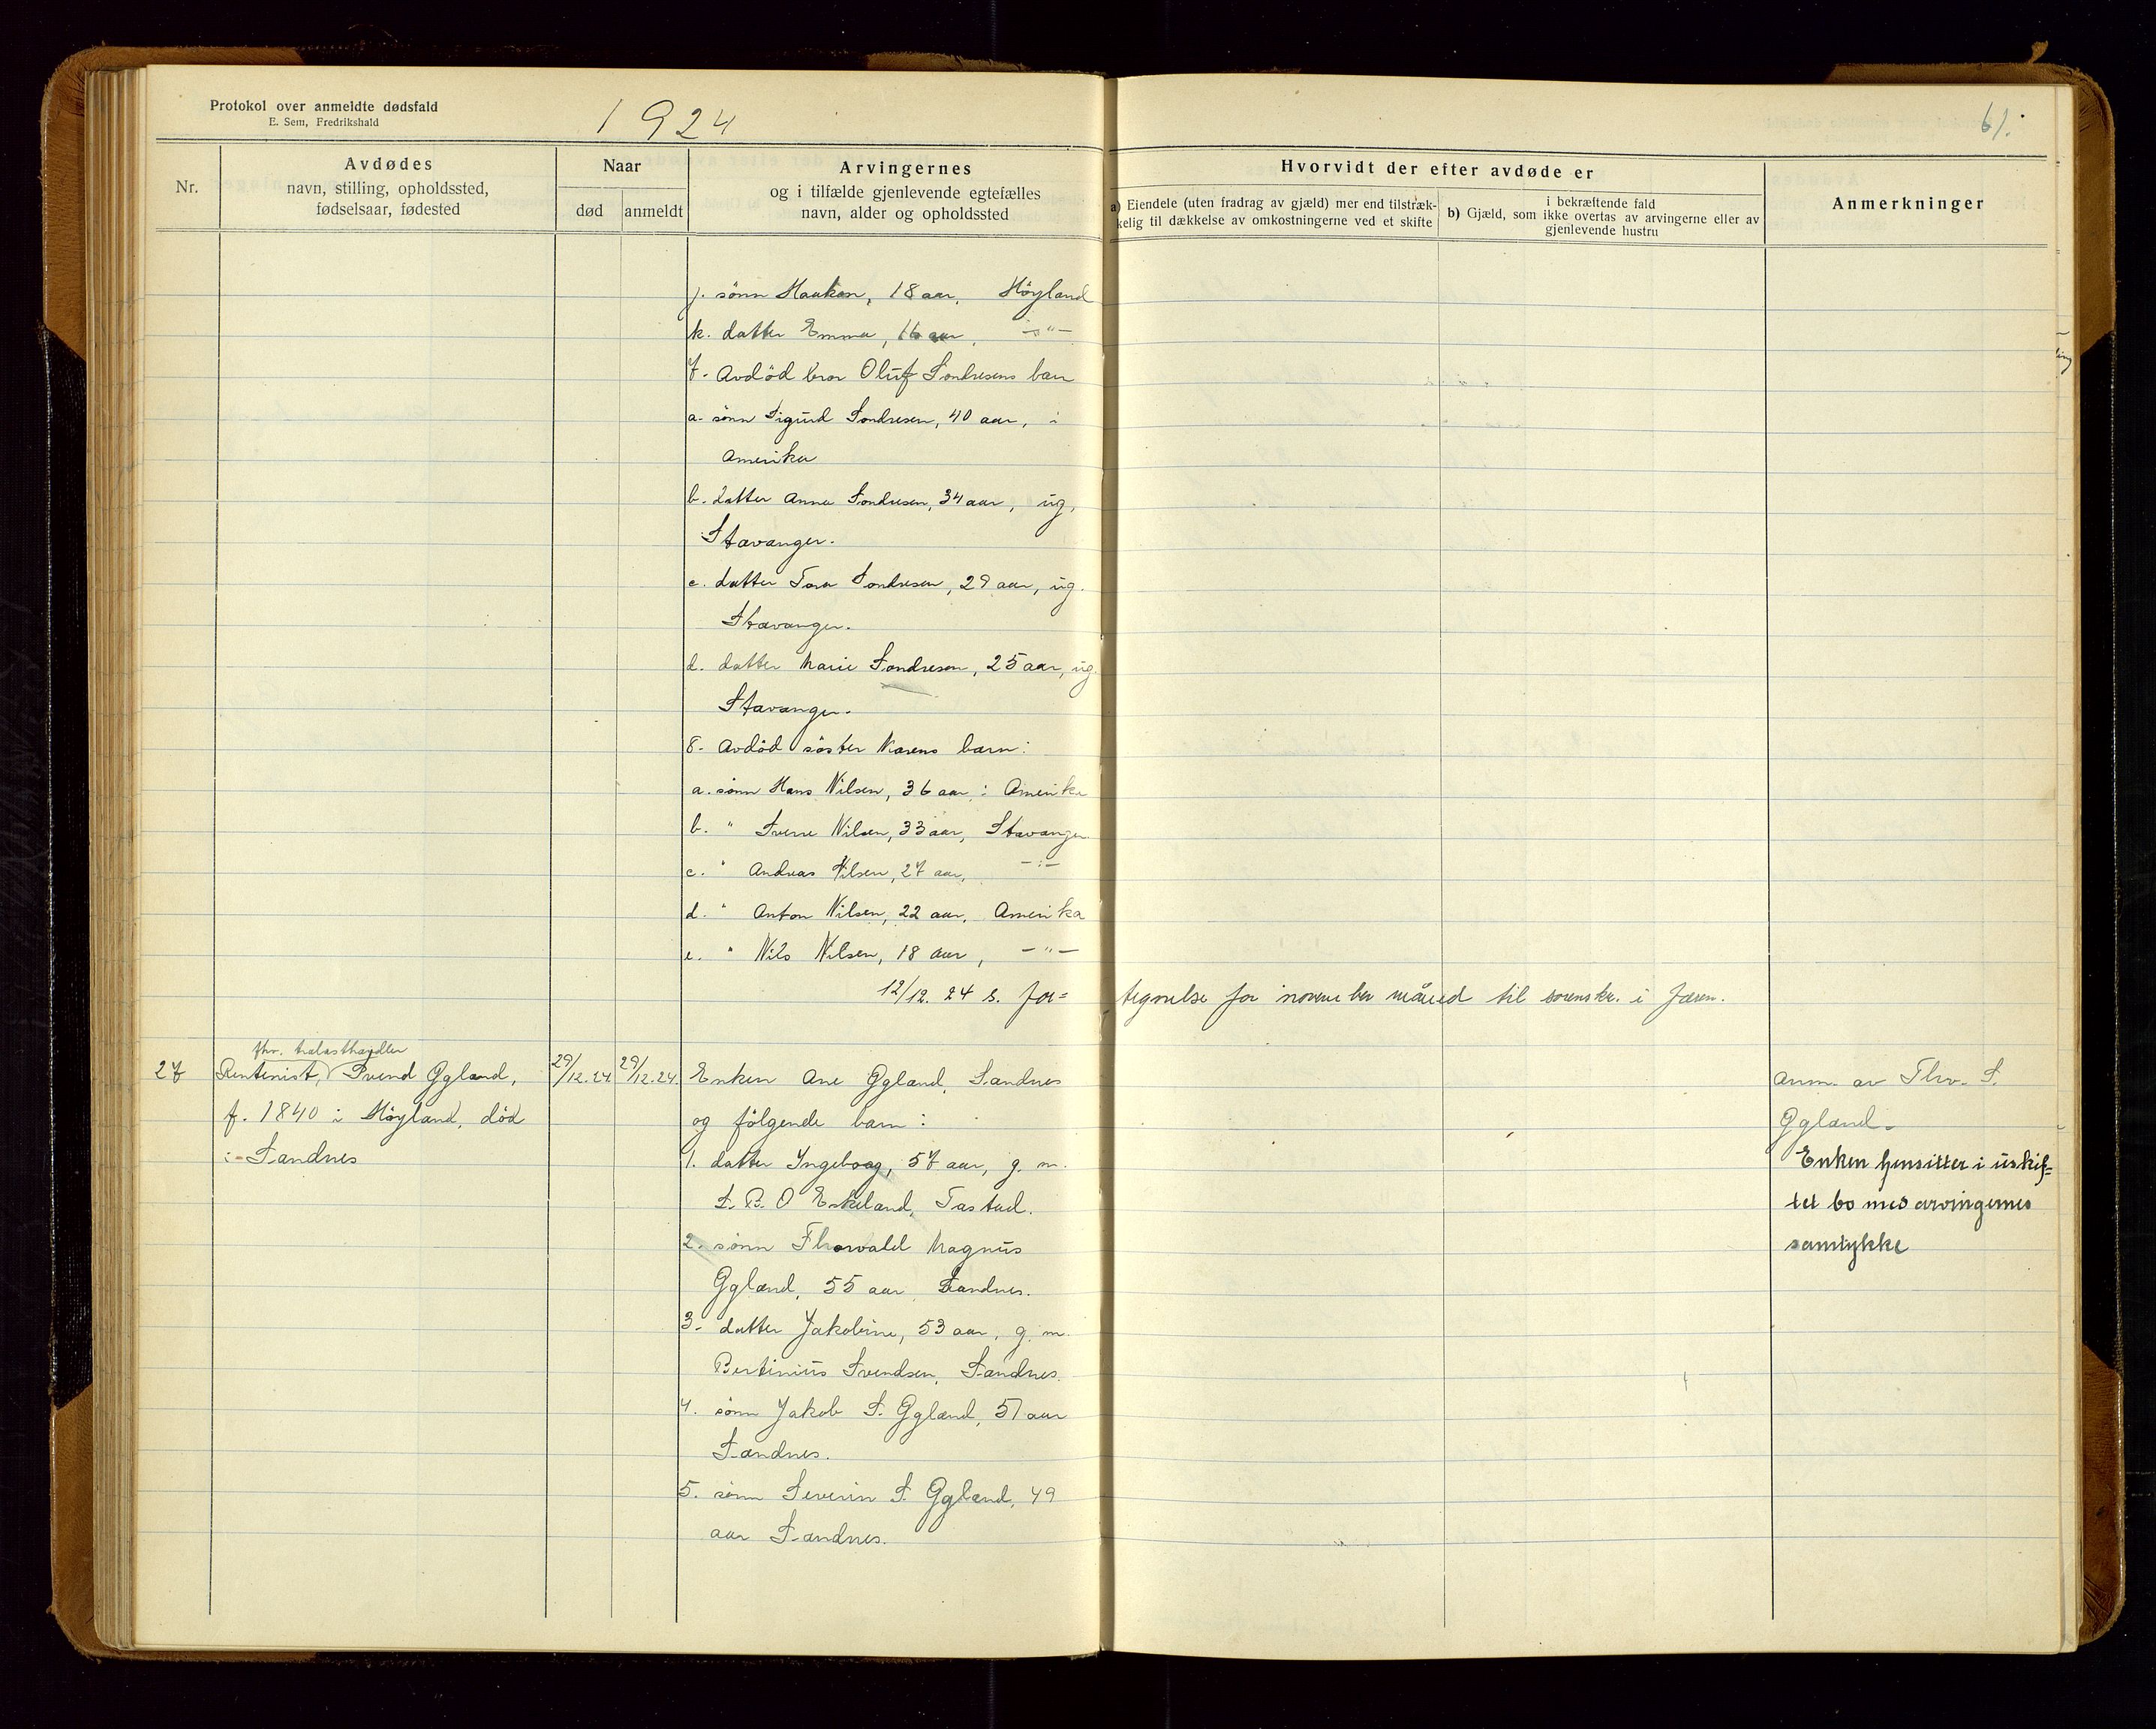 Protokol over anmeldte dødsfald
E. Sem, Fredrikshald
1924
61.
Nr.
Avdødes
navn, stilling, opholdssted,
fødselsaar, fødested
Naar
død
anmeldt
Arvingernes
og i tilfælde gjenlevende egtefælles
navn, alder og opholdssted
Hvorvidt der efter avdøde er
a) Eiendele (uten fradrag av gjæld) mer end tilstræk-
kelig til dækkelse av omkostningerne ved et skifte
i bekræftende fald
b) Gjæld, som ikke overtas av arvingerne eller av
gjenlevende hustru
Anmerkninger
j. sønn Haakon, 18 aar, Höyland
k. datter Emma, 16 aar, -"-
7. Avdöd bror Oluf Sondresens barn
a. sönn Sigurd Sondresen, 40 aar, i
Amerika
b. datter Anna Sondresen, 34 aar, ug,
Stavanger.
c. datter Tora Sondresen, 29 aar, ug.
Stavanger.
d. datter Marie Sondresen, 25 aar, ug.
Stavanger.
8. Avdöd söster Karens barn:
a. sönn Hans Nilsen, 36 aar i Amerika
b. " Sverre Nilsen, 33 aar, Stavanger
c. " Andreas Nilsen, 27 aar, -"-
d. " Anton Nilsen, 22 aar, Amerika
e. " Nils Nilsen, 18 aar, -"-
12/12. 24 s. for= tegnelse for november måned til sorenskr. i Jæren.
27
fhv. trælasthandler
Rentenist, Svend Ggland,
f. 1840 i Höyland, död
i Sandnes
29/12.24
29/12.24
Enken Ane Ggland, Sandnes
og fölgende barn:
1. datter Ingeborg, 57 aar, g. m.
S. B. O Eskeland, Tastad.
2. sönn Thorvald Magnus
Ggland, 55 aar, Sandnes.
3. datter Jakobine, 53 aar, g. m.
Bertinius Svendsen, Sandnes.
4. sönn Jakob S. Ggland, 51 aar
Sandnes.
5. sönn Severin S. Ggland, 49
aar Sandnes.
anm. av Thv. S.
Ggland.
Enken hensitter i uskif=
tet bo med arvingernes
samtykke